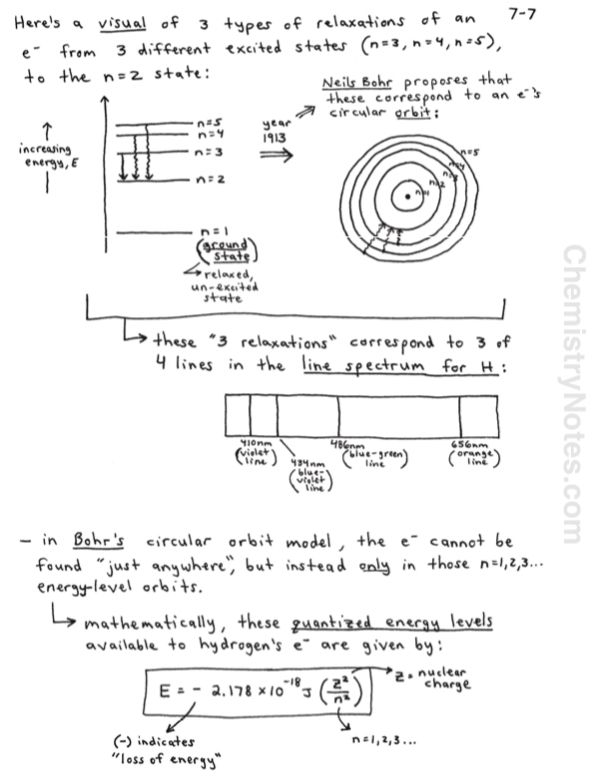 7-7
Here's a visual of 3 types of relaxations of an
e⁻ from 3 different excited states (n=3, n=4, n=5),
to the n=2 state:
Neils Bohr proposes that
these correspond to an e⁻'s
circular orbit:
increasing
energy, E
n=5
n=4
n=3
n=2
n=1
(ground
state)
relaxed,
un-excited
state
year
1913
⇒
n=5
n=4
n=3
n=2
n=1
these "3 relaxations" correspond to 3 of
4 lines in the line spectrum for H:
410nm
(violet
line)
434nm
(blue-
violet
line)
486nm
(blue-green
line)
656nm
(orange
line)
- in Bohr's circular orbit model, the e⁻ cannot be
found "just anywhere", but instead only in those n=1,2,3...
energy-level orbits.
mathematically, these quantized energy levels
available to hydrogen's e⁻ are given by:
E = - 2.178 x10⁻¹⁸ J (Z²/n²)
Z = nuclear
charge
(-) indicates
"loss of energy"
n=1,2,3...
ChemistryNotes.com